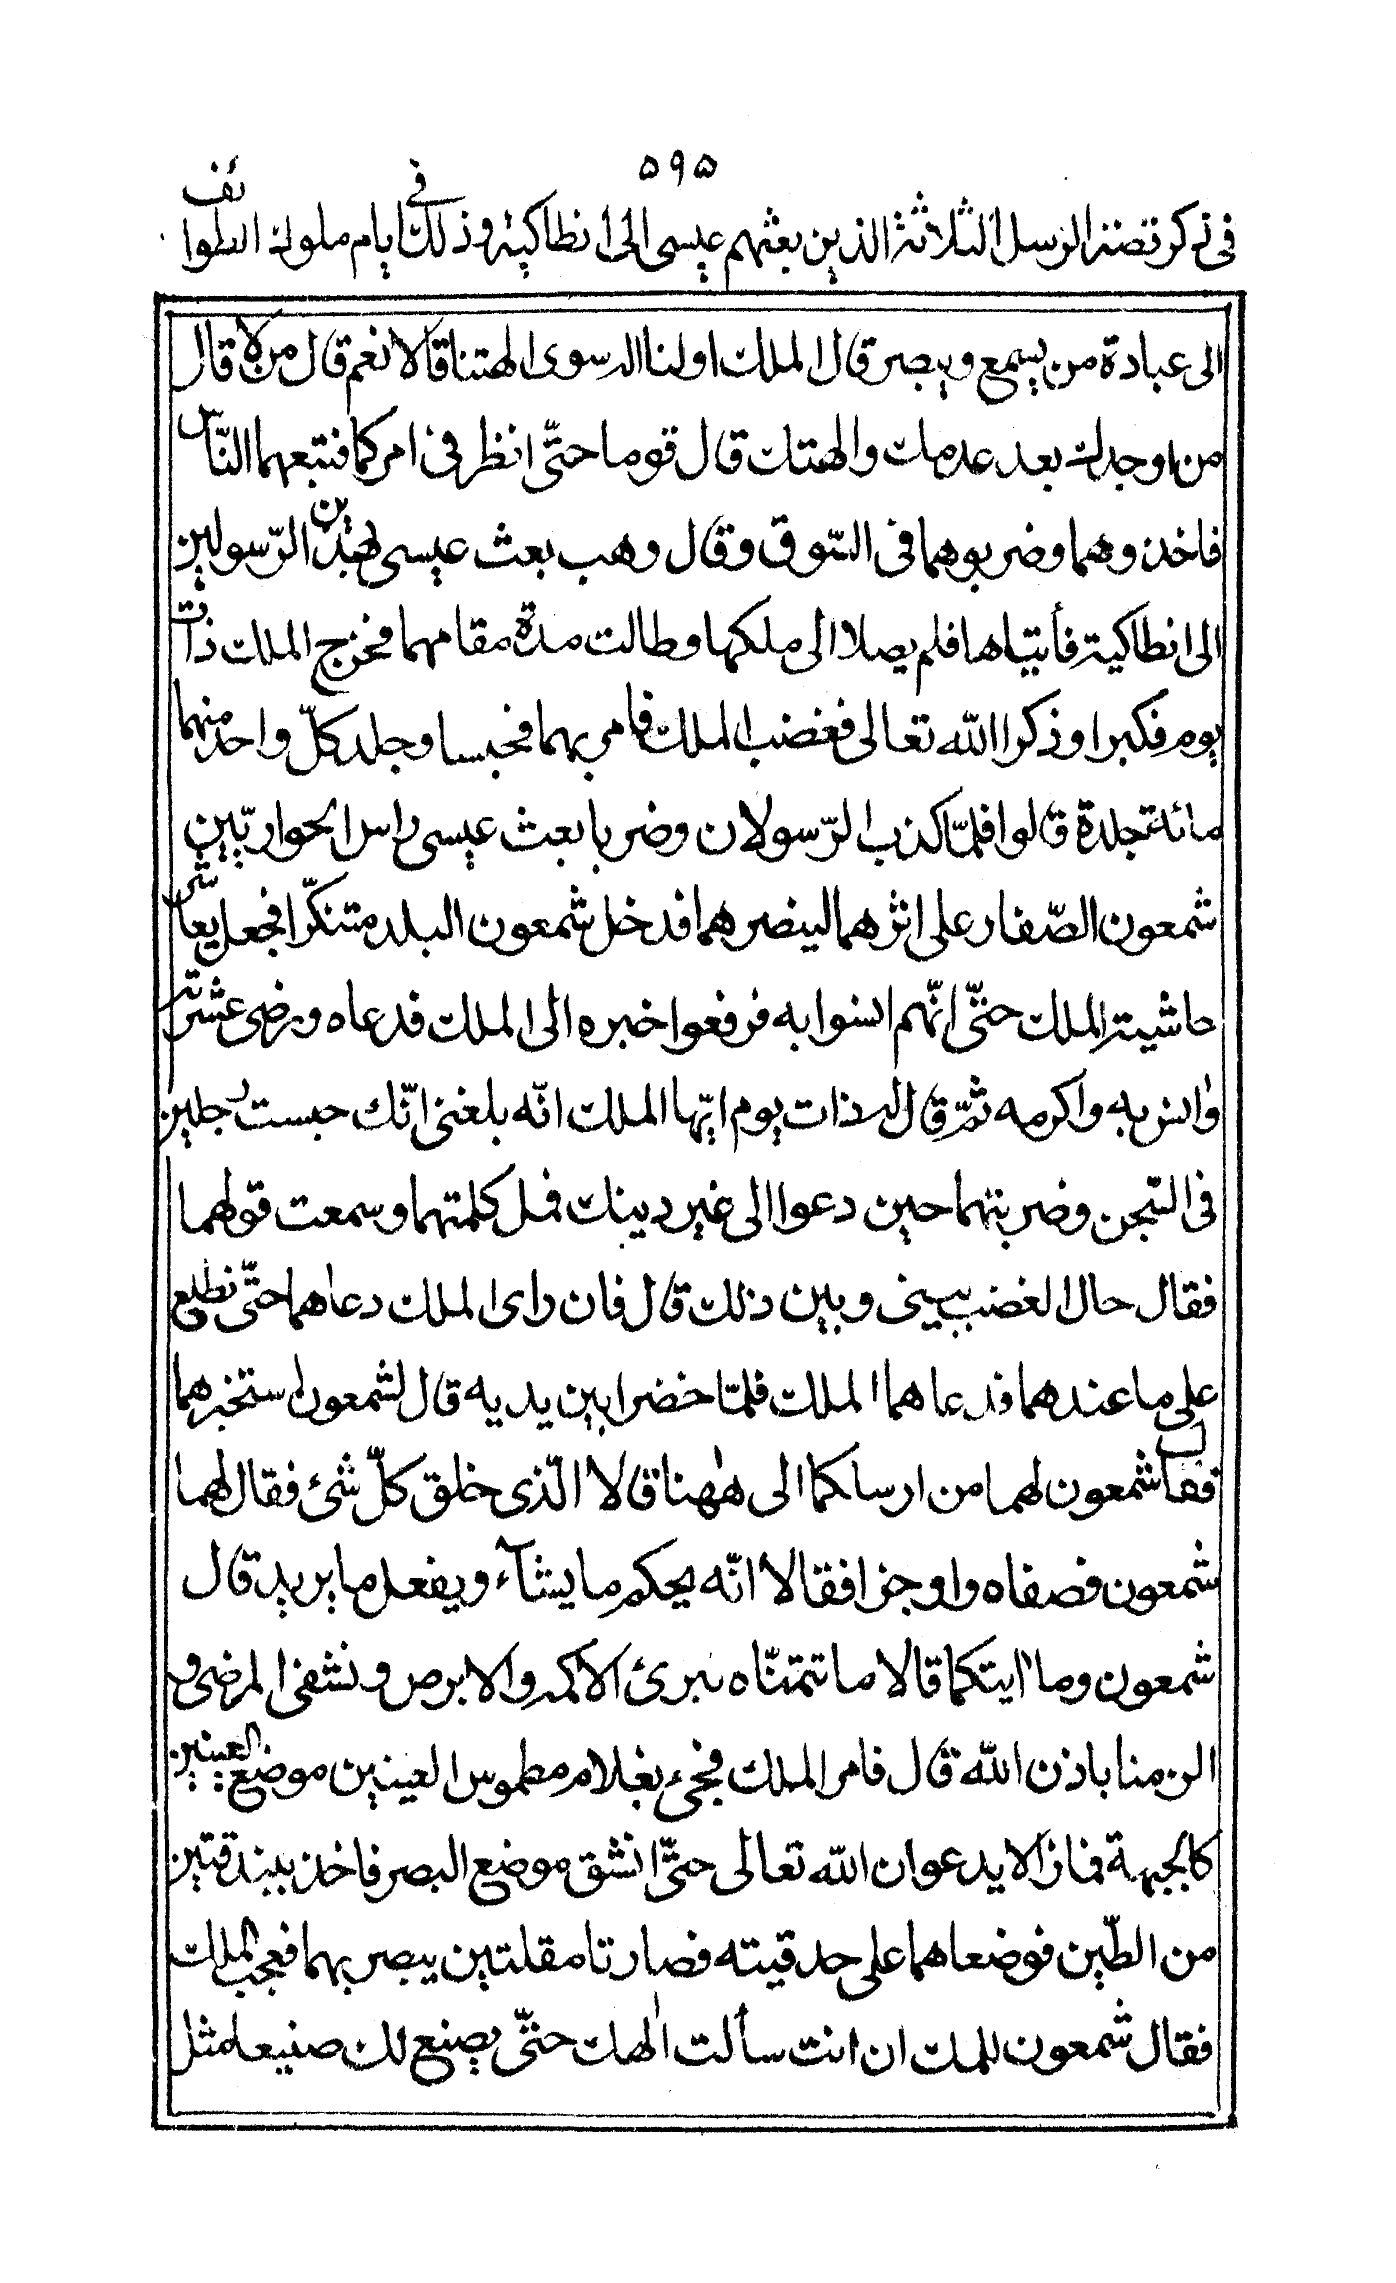 ۵۹۵
فی ذكر قصة الرسل الثلاثة الذین بعثهم عیسی الی انطاكیة و ذلك فی ایام ملوك الطوائف
الی عبادة من یسمع و یبصر قال الملك او لنا اله سوی الهتنا قالا نعم قال من لا قال
من اوجدك بعد عدمك و الهتك قال قوما حتّی انظر فی امركما فتبعهما النّاس
فاخذوهما و ضربوهما فی السّوق و قال وهب بعث عیسی هذین الرّسولین
الی انطاكیة فأتیاها فلم یصلا الی ملكها و طالت مدة مقامهما فخرج الملك ذات
یوم فكبرا و ذكرا اللّه تعالی فغضب الملك فامر بهما فحبسا و جلد كلّ واحد منهما
مائة جلدة قالوا فلمّا كذب الرّسولان و ضربا بعث عیسی راس الحواریّین
شمعون الصّفار علی اثرهما لینصرهما فدخل شمعون البلد متنكّرا فجعل یعاشر
حاشیة الملك حتّی انّهم انسوا به فرفعوا خبره الی الملك فدعاه و رضی عشرته
وانس به و اكرمه ثمّ قال له ذات یوم ایّها الملك انّه بلغنی انّك حبست رجلین
فی السّجن و ضربتهما حین دعوا الی غیر دینك فهل كلمتهما و سمعت قولهما
فقال حال الغضب بینی و بین ذلك قال فان رای الملك دعاهما حتّی نطلع
علی ما عندهما فدعاهما الملك فلمّا حضرا بین یدیه قال لشمعون استخبرهما
فقال شمعون لهما من ارسلكما الی هٰهنا قالا الّذی خلق كلّ شئ فقال لهما
شمعون فصفاه و اوجزا فقالا انّه یحكم ما یشآء و یفعل ما یرید قال
شمعون و ما ایتكما قالا ما تتمنّاه نبرئ الاكمه و الابرص و نشفی المرضی و
الزمنا باذن اللّه قال فامر الملك فجیء بغلام مطموس العینین موضع العینین
كالجبهة فمازالا یدعوان اللّه تعالی حتّی انشق موضع البصر فاخذ ببندقتین
من الطّین فوضعاهما علی حدقیته فصارتا مقلتین یبصر بهما فعجب الملك
فقال شمعون للملك ان انت سألت الٰهك حتّی یصنع لك صنیعا مثل